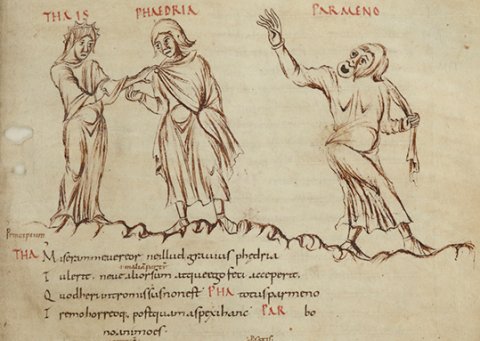 THAIS PHAEDRIA PARMENO
THA Miseram me vereor ne illud gravius phedria
Tulerit, neve aliorsum atque ego feci acceperit,
Quod heri intromissus non est PHA totus parmeno
Tremo horreoq; postquam aspexi hanc PAR bo
no animo es